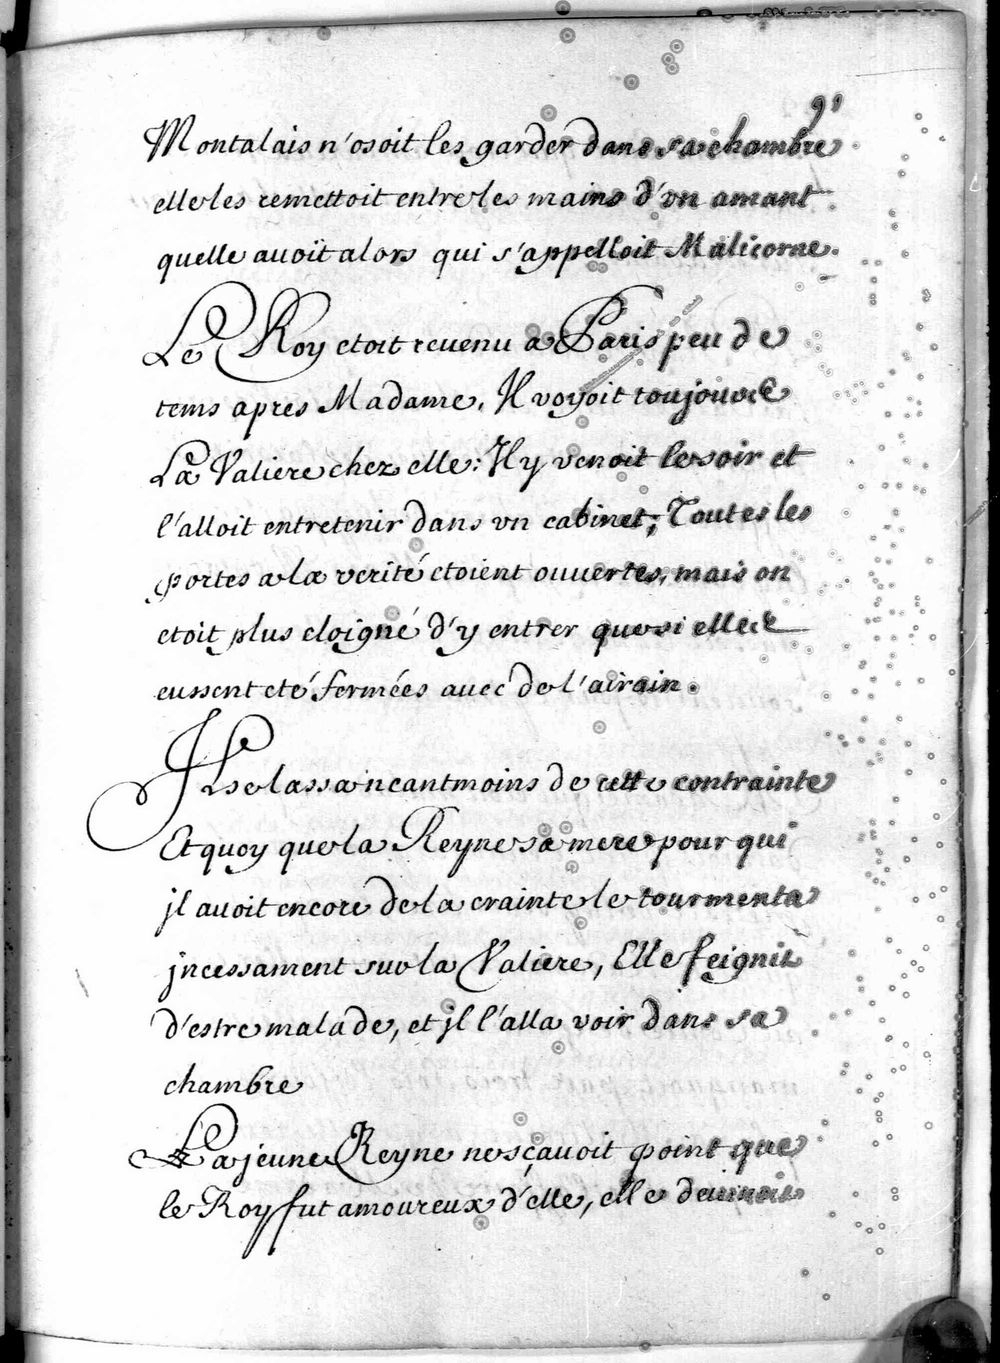 91
Montalais n'osoit les garder dans sa chambre
elle les remettoit entre les mains d'vn amant
quelle avoit alors qui s'appelloit Malicorne.
Le Roy etoit revenu a Paris peu de
tems apres Madame, Il voyoit toujours
La Valiere chez elle: Il y venoit le soir et
l'alloit entretenir dans vn cabinet; Toutes les
portes a la verité etoient ouvertes, mais on
etoit plus eloigné d'y entrer que si elles
eussent eté fermées avec de l'airain.
Il se lassa neantmoins de cette contrainte
Et quoy que la Reyne sa mere pour qui
jl avoit encore de la crainte le tourmenta
jncessament sur la Valiere, Elle feignit
d'estre malade, et jl l'alla voir dans sa
chambre
La jeune Reyne ne sçavoit point que
le Roy fut amoureux d'elle, elle devinoit